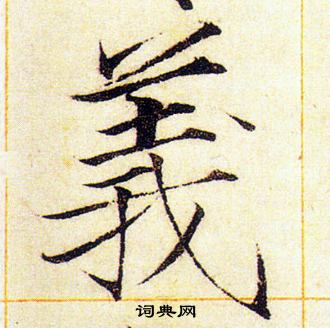 義
词典网